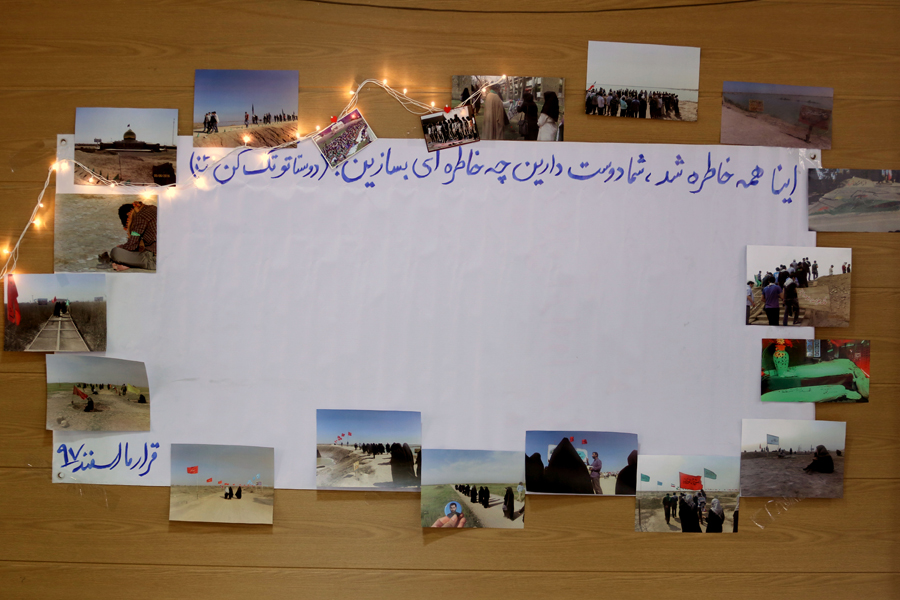 اینا همه خاطره شد، شما دوست دارین چه خاطره ای بسازین؟ (دوستاتو تگ کن)
قرار ما اسفند ۹۷